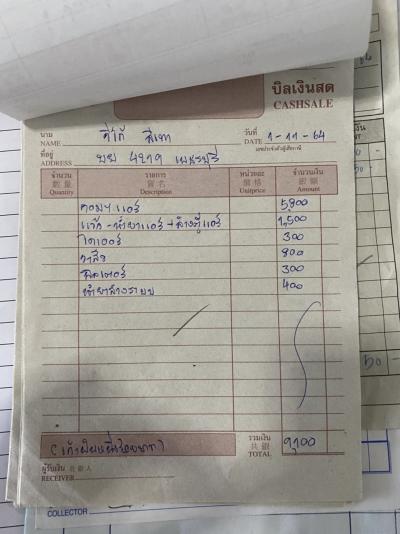 บิลเงินสด
CASHSALE
นาม
NAME ดีโก้ สีเทา
วันที่
DATE 1-11-64
เลขประจำตัวผู้เสียภาษี
ที่อยู่
ADDRESS บย 4219 เพชรบุรี
จำนวน รายการ หน่วยละ จำนวนเงิน
數量 貨名 價格 銀額
Quantity Description Unitprice Amount
คอมฯแอร์ 5,800
แวค-น้ำยาแอร์ + ล้างตู้แอร์ 1,500
ไดเออร์ 300
วาล์ว 800
300
น้ำยาล้างระบบ 400
(เก้าพันหนึ่งร้อยบาท)
รวมเงิน
共銀
TOTAL 9,100
ผู้รับเงิน 收銀人
RECEIVER
COLLECTOR